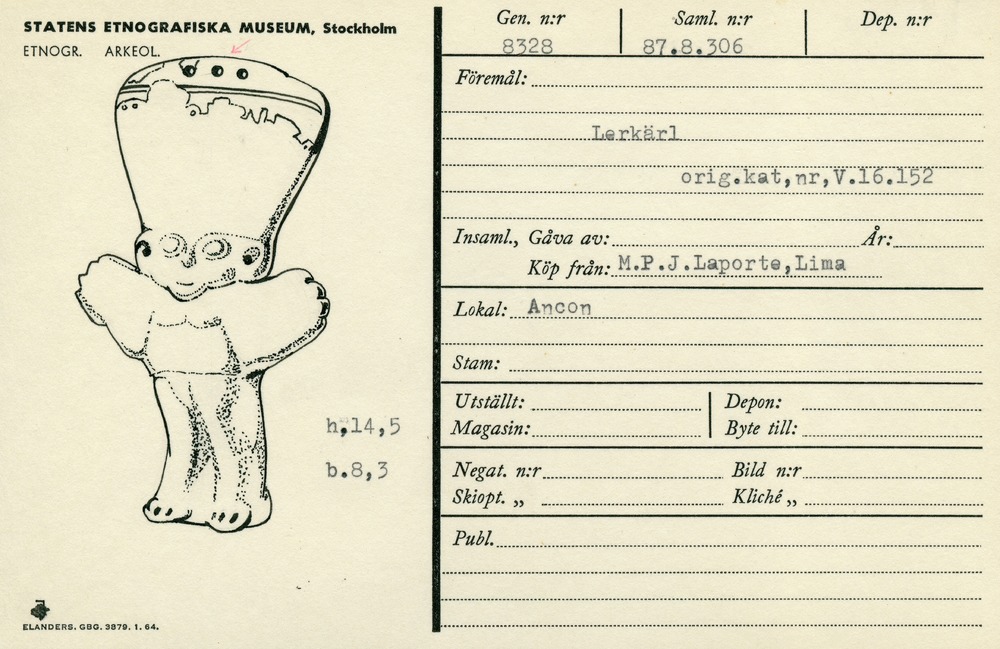 STATENS ETNOGRAFISKA MUSEUM, Stockholm
ETNOGR. ARKEOL.
h,14,5
b.8,3
ELANDERS. GBG. 3879. 1. 64.
Gen. n:r Saml. n:r Dep. n:r
8328 87.8.306
Föremål:
Lerkärl
orig.kat,nr,V.16.152
Insaml., Gåva av: År:
Köp från: M.P.J.Laporte,Lima
Lokal: Ancon
Stam:
Utställt: Depon:
Magasin: Byte till:
Negat. n:r Bild n:r
Skiopt. „ Kliché „
Publ.